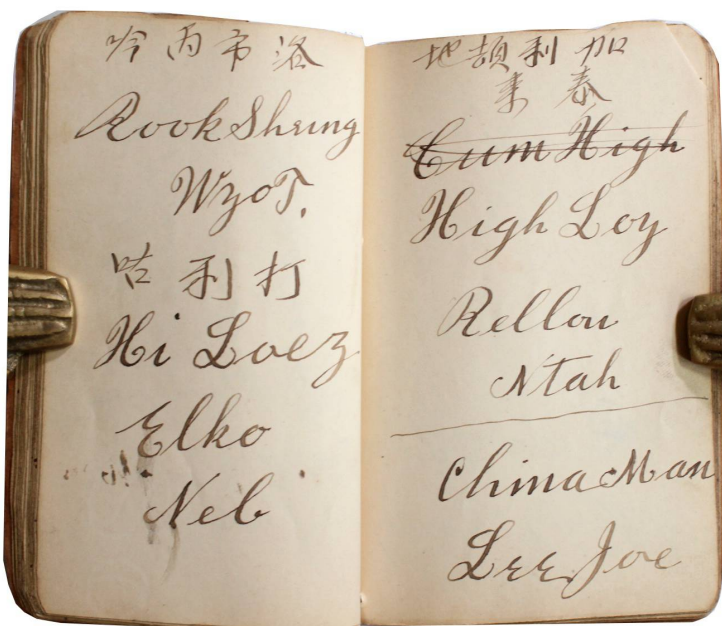 吟丙市洛
Rook Shring
WyoT.
咕利打
Hi Loez
Elko
Neb
地頡利加
来泰
Cum High
High Loy
Rellou
Ntah
China Man
Lee Joe